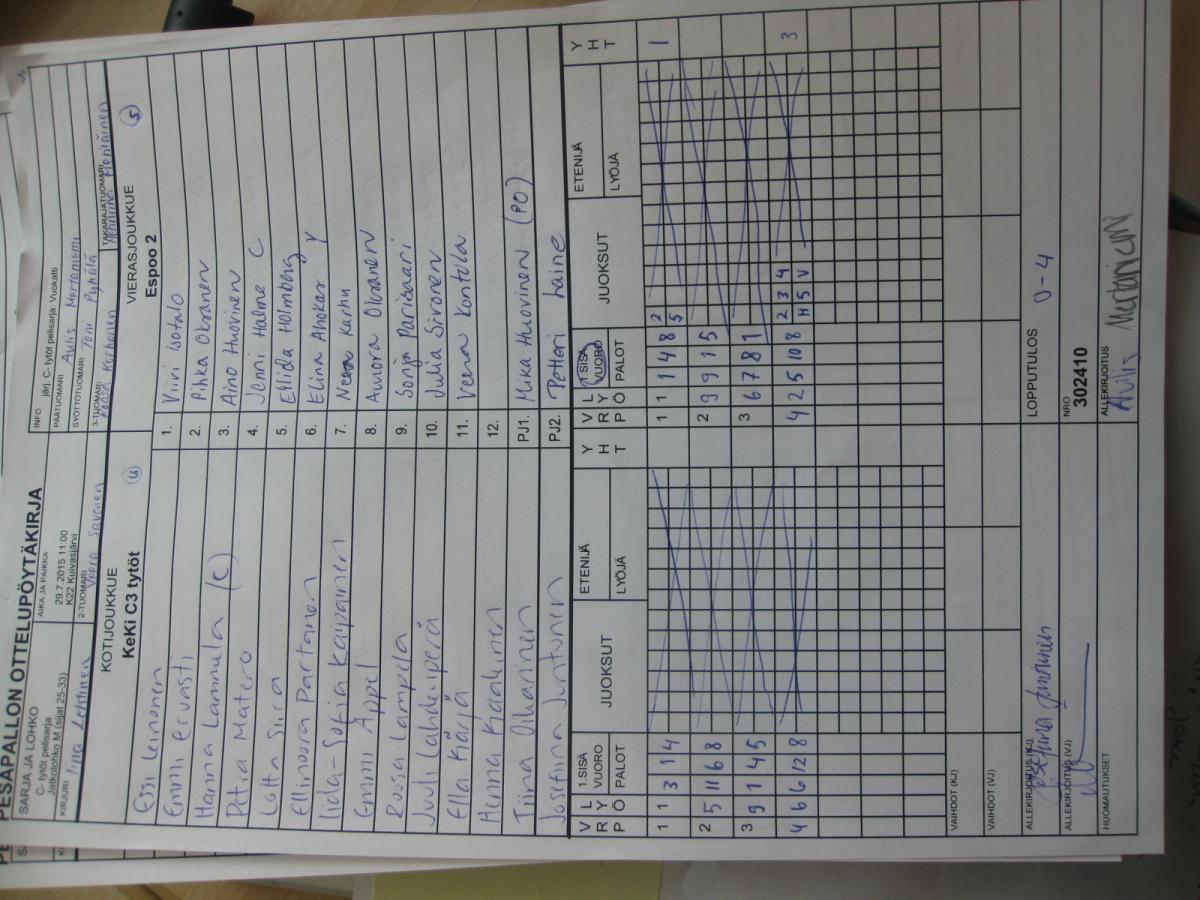 PESÄPALLON OTTELUPÖYTÄKIRJA
SARJA JA LOHKO
C- tyttöt pelisarja
Jatkolohko M (sijat 25-33)
AIKA JA PAIKKA
29.7.2015 11:00
K22 Kuivasjärvi
INFO järj. C- tytöt pelisarja: Vuokatti
PÄÄTUOMARI Aulis Mertaniemi
SYÖTTÖTUOMARI Toni Pyhälä
KIRJURI Iina Lehtinen
2-TUOMARI Veera Savonen
3-TUOMARI Korhonen
TAKARAJATUOMARI
KOTIJOUKKUE
KeKi C3 tytöt (u)
VIERASJOUKKUE
Espoo 2 (s)
Essi Leinonen 1. Viivi Isotalo
Emmi Ervasti 2. Pihka Oksanen
Hanna Lammula (C) 3. Aino Huovinen
Petra Matero 4. Jenni Halme C
Lotta Siira 5. Ellida Holmberg
Ellinoora Partanen 6. Elina Ahokas
Iida-Sofia Kaipainen 7. Karhu
Emmi Appel 8. Aurora Oksanen
Roosa Lampela 9. Sonja
Juuli Lahdenperä 10. Julia Sironen
Ella Kärjä 11. Veera Kontula
Henna Kaakinen 12.
Tiina Oikarinen PJ1. Mika Huovinen (PO)
Josefiina Juntunen PJ2. Petteri Laine
VRP LYÖ 1.SISÄ VUORO PALOT JUOKSUT ETENIJÄ LYÖJÄ YHT VRP LYÖ 1.SISÄ VUORO PALOT JUOKSUT ETENIJÄ LYÖJÄ YHT
1 1 3 1 4 1 1 1 4 8 2 5 1
2 5 11 6 8 2 9 9 1 5
3 9 1 4 5 3 6 7 8 1
4 6 6 12 8 4 2 5 10 8 2 3 4 H 5 V 3
VAIHDOT (KJ)
VAIHDOT (VJ)
ALLEKIRJOITUS (KJ) Josefiina Juntunen
LOPPUTULOS 0-4
ALLEKIRJOITUS (VJ)
NRO
302410
HUOMAUTUKSET
ALLEKIRJOITUS
Aulis Mertaniemi